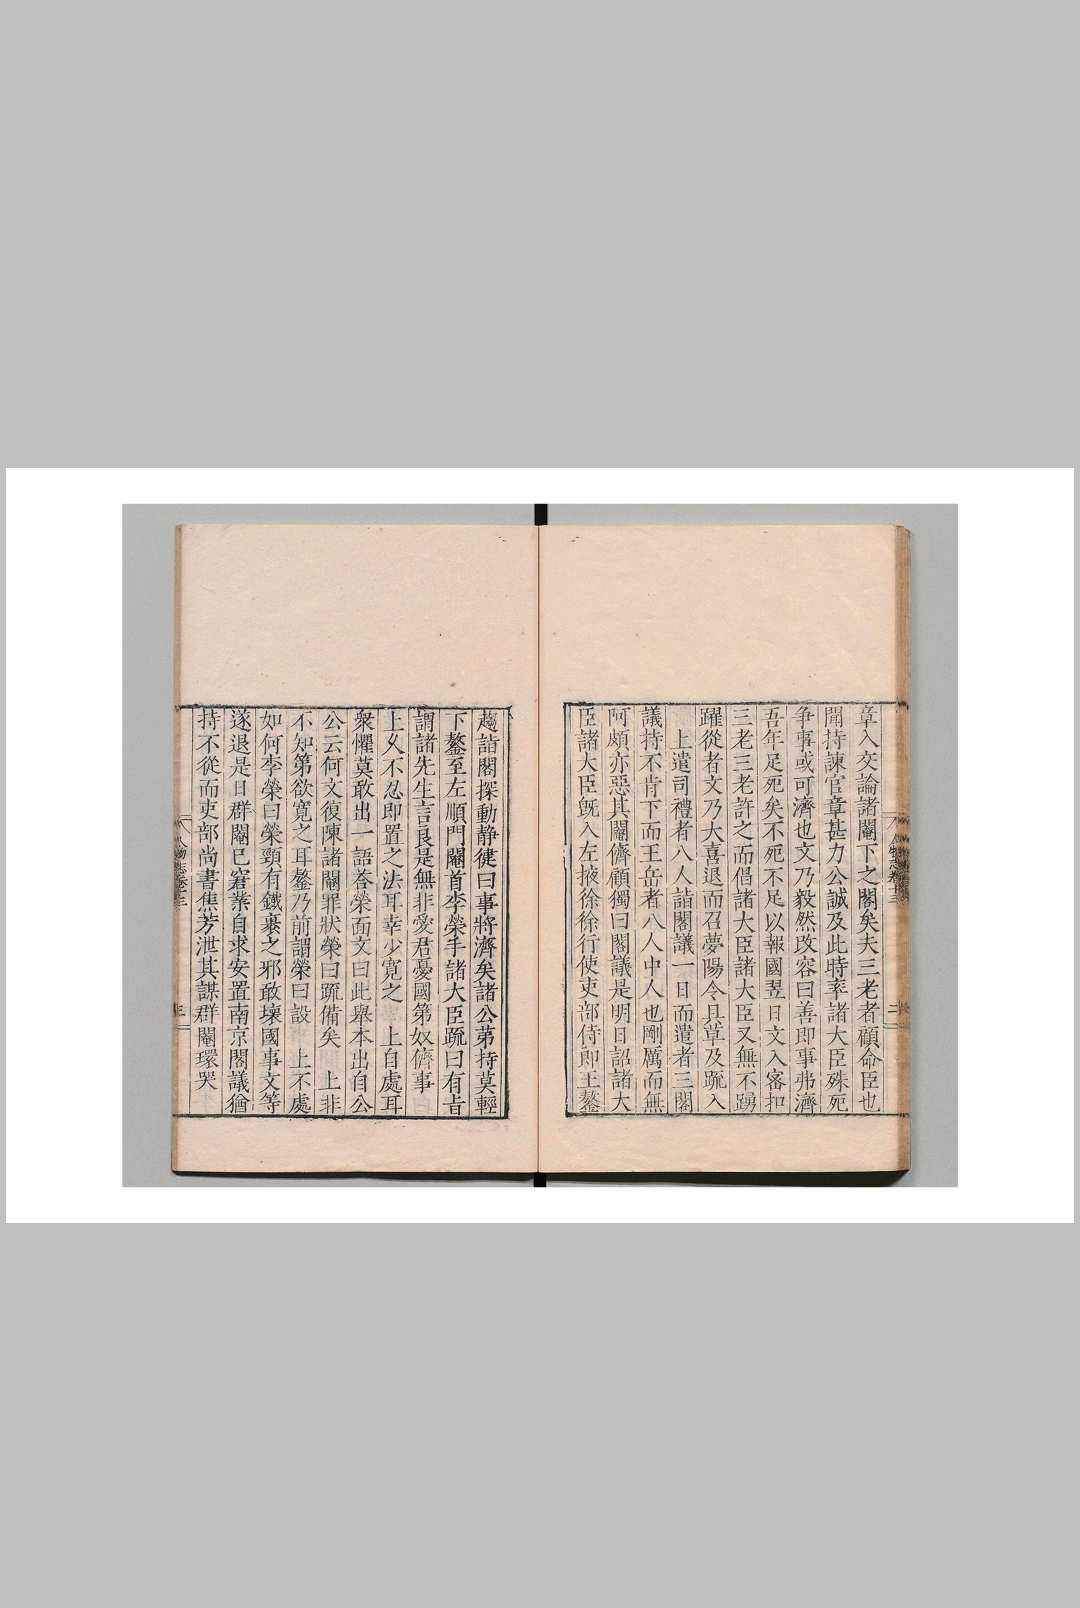 章入交論諸閹下之閣矣夫三老者顧命臣也
聞持諫官章甚力公誠及此時率諸大臣殊死
争事或可濟也文乃毅然改容曰善即事弗濟
吾年足死矣不死不足以報國翌日文入密扣
三老三老許之而倡諸大臣諸大臣又無不踴
躍從者文乃大喜退而召夢陽令具草及疏入
上遣司禮者八人詣閣議一日而遣者三閣
議持不肯下而王岳者八人中人也剛厲而無
阿頗亦惡其閹儕顧獨曰閣議是明日詔諸大
臣諸大臣旣入左掖徐徐行使吏部侍郎王鏊
趨詣閣探動静健曰事將濟矣諸公第持莫輕
下鏊至左順門閹首李榮手諸大臣疏曰有旨
謂諸先生言良是無非愛君憂國第奴儕事
上久不忍即置之法耳幸少寬之 上自處耳
衆懼莫敢出一語荅榮面文曰此舉本出自公
公云何文復陳諸閹罪狀榮曰疏備矣 上非
不知第欲寬之耳鏊乃前謂榮曰設 上不處
如何李榮曰榮頸有鐵裹之邪敢壞國事文等
遂退是日群閹已窘業自求安置南京閣議猶
持不從而吏部尚書焦芳泄其謀群閹環哭
人物志卷十三
二
物志卷十三
三